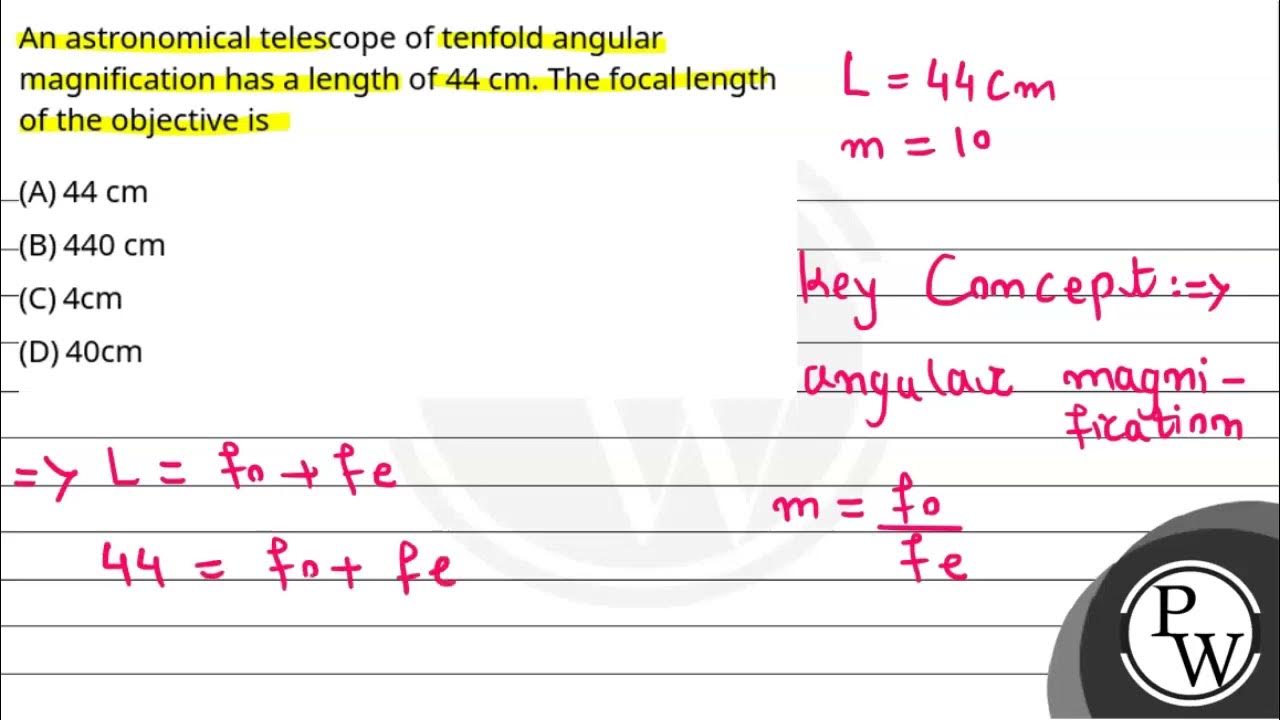 An astronomical telescope of tenfold angular
magnification has a length of 44 cm. The focal length
of the objective is
(A) 44 cm
(B) 440 cm
(C) 4cm
(D) 40cm
L = 44cm
m = 10
Key Concept:=>
angular magni-
fication
m = fo
fe
=> L = fo + fe
44 = fo + fe
PW